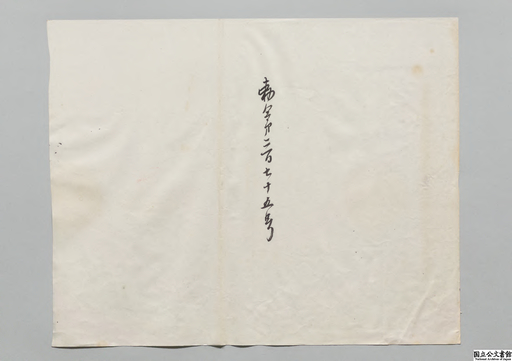 勅令第二百七十五号
国立公文書館
National Archives of Japan